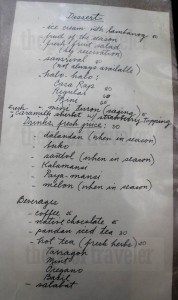 Dessert
- ice cream with
- fruit of the season
- fresh fruit salad
(by reservation)
- sansrival
(not always available)
- halo-halo:
Regular
Mine
fresh - mine turon (saging)
- Caramelth sherbet w/ strawberry topping
Drinks, fresh juice: 50
- dalandan (when in season)
- buko
- sandol (when in season)
- Kalamansi
- Paya-mansi
- melon (when in season)
Beverages
- coffee
- native chocolate
- pandan iced tea 20
- hot tea (fresh herbs) 20
Tarragon
Mint
Oregano
Basil
- salabat